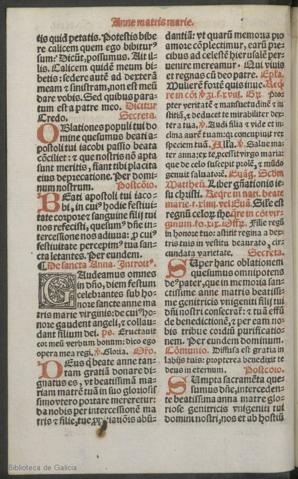 Anne matris marie.
tis quid petatis. Potestis bibe
re calicem quem ego bibitur⁹
sum? Dicūt, possumus. Ait il
lis. Calicem quidē meum bi
betis: sedere autē ad dexterā
meam ⁊ sinistram, non est meū
dare vobis. Sed quibus para
tum est a patre meo. Dicitur
Credo. Secreta.
OBlationes populi tui do
mine quesumus beati a
postoli tui iacobi passio beata
cōciliet: ⁊ que nostris nō apta
sunt meritis, fiant tibi placita
eius deprecatione. Per domi
num nostrum. Postcōio.
BEati apostoli tui iaco
bi, in cui⁹ hodie festiui
tate corpore ⁊ sanguine filij tui
nos refecisti, quesum⁹ dñe in
tercessione nos adiuua: ꝓ cui⁹
festiuitate percepim⁹ tua san
cta letantes. Per eundem.
De sancta Anna. Introit⁹.
GAudeamus omnes
in dño, diem festum
celebrantes sub ho
nore sancte anne ma
tris marie virginis: de cui⁹ ho
nore gaudent angeli, ⁊ collau
dant filium dei. ps. Eructauit
cor meū verbum bonum: dico ego
opera mea regi. Gloria. Oro.
DEus q̄ beate anne tan
tam gratiā donare di
gnatus es, vt beatissimā ma
riam matrē tuā in suo glorioso
vtero portare mereretur:
da nobis per intercessionē ma
tris ⁊ filie, tue
dantiā: vt quarū memoria pio
amore cōplectimur, earū pre
cibus ad celestē hierusalē per
uenire mereamur. Qui viuis
et regnas cū deo patre. Ep̄la.
Mulierē fortē quis inue. Req̄
re in cōi
pter veritatē ⁊ mansuetudinē ⁊ iu
stitiā, ⁊ deducet te mirabiliter dex
tera tua. Audi filia ⁊ vide et in
clina aurē tuam: q̄ concupiuit rex
speciem tuā. Alla. Salue ma
ter anna, ex te, processit virgo maria:
que de celo suscepit prolē, ⁊ mūdū
genuit saluatorē. Euāg. Scḋm
Mattheū. Liber gn̄ationis ie
su christi. Req̄re in nati. beate
marie. Sile est
regnū celoꝝ. req̄re in cōi vir
ginum. Offz. filie regū
in honore tuo: astitit regina a dex
tris tuis in vestitu deaurato, cir
cūdata varietate. Secreta.
SUper hanc oblationem
quesumus omnipotens de
us pater, que in memoria san
ctissime anne matris beatissi
me genitricis vnigeniti filij tui
dñi nostri consecraī: ⁊ tuā effū
de benedictionē, ⁊ per eam no
bis tribue cordis purificatio
nem. Per eundem dominum.
Cōmunio. Diffusa est gratia in
labijs tuis: propterea benedixit te
deus in eternum. Postcōio.
SUmpta sacramēta que
sumus dñe, interceden
te beatissima anna matre glo
riose genitricis vnigeniti tui
domini nostri, nos et ab hostiū
Biblioteca de Galicia